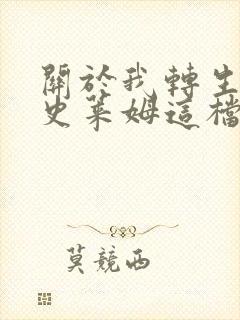 關於我轉生
史萊姆這檔
莫競西